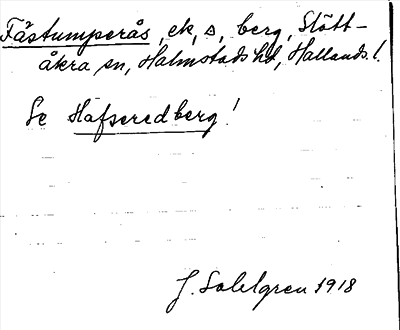 Fästumperås, ek, s, berg, Slätt-
åkra sn, Halmstads hd, Hallands l.
Se Hafseredberg!
J. Sahlgren 1918